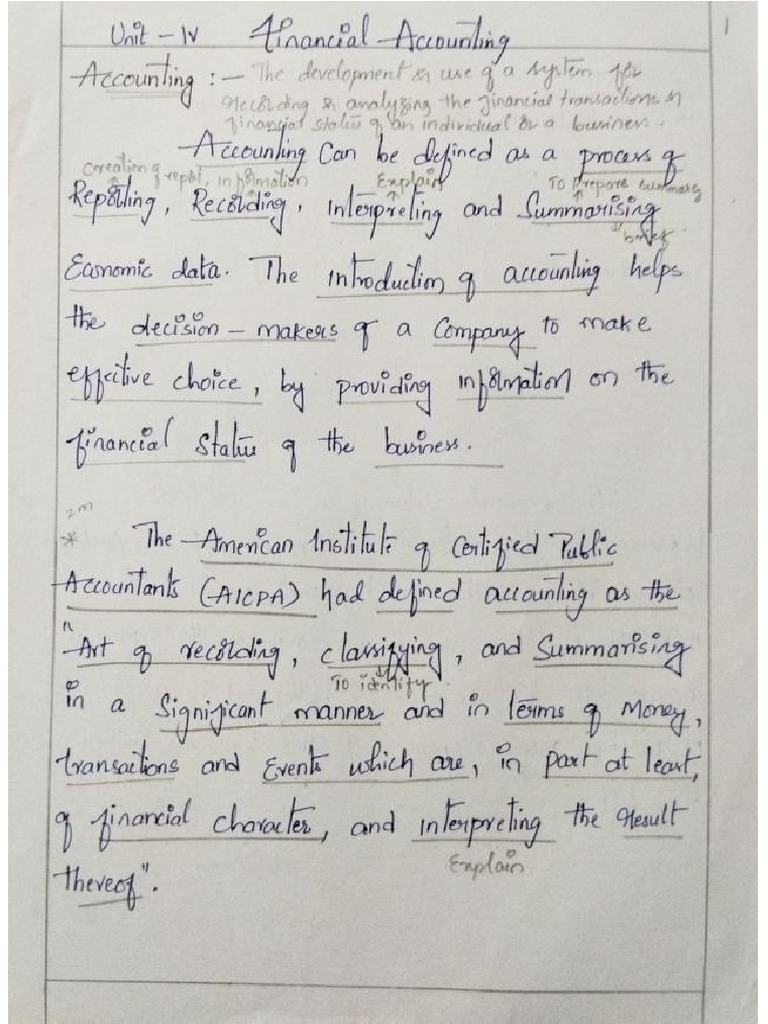 1
Unit - IV Financial Accounting
Accounting :- The development & use of a system for
recording & analyzing the financial transactions &
financial status of an individual or a business.
Accounting Can be defined as a process of
creation of repot, information Explain To prepare summary
Reporting, Recording, Interpreting and Summarising
brief
Economic data. The introduction of accounting helps
the decision - makers of a Company to make
effective choice, by providing information on the
financial status of the business.
2m
* The American Institute of Certified Public
Accountants (AICPA) had defined accounting as the
"Art of recording, classifying, and Summarising
To identify
in a significant manner and in terms of Money,
transactions and Events which are, in part at least,
of financial character, and interpreting the result
Explain
thereof".